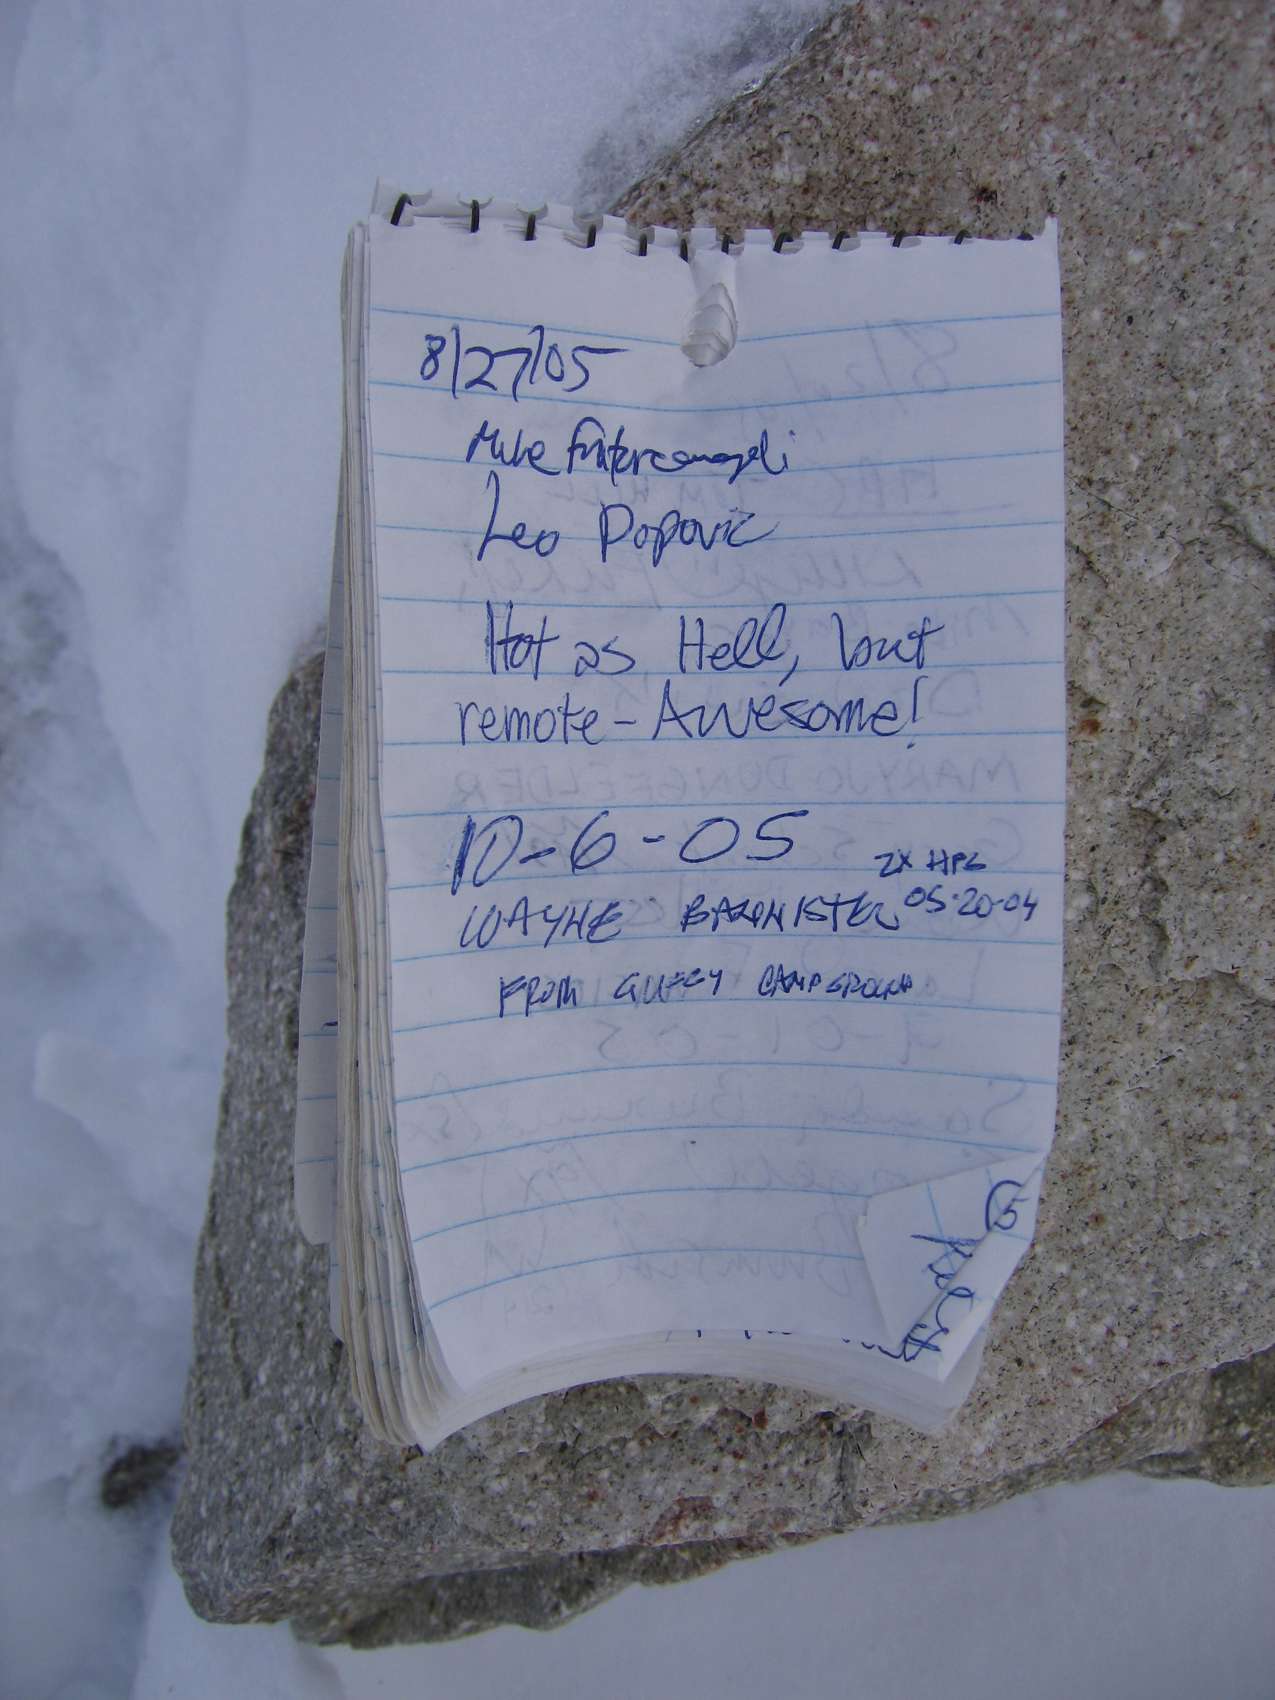 8/27/05
Mike Fratercangeli
Leo Popovic
Hot as Hell, but
remote - Awesome!
10-6-05
2X HPS
WAYNE BANNISTER 05-20-04
FROM GUFFY CAMPGROUND
5